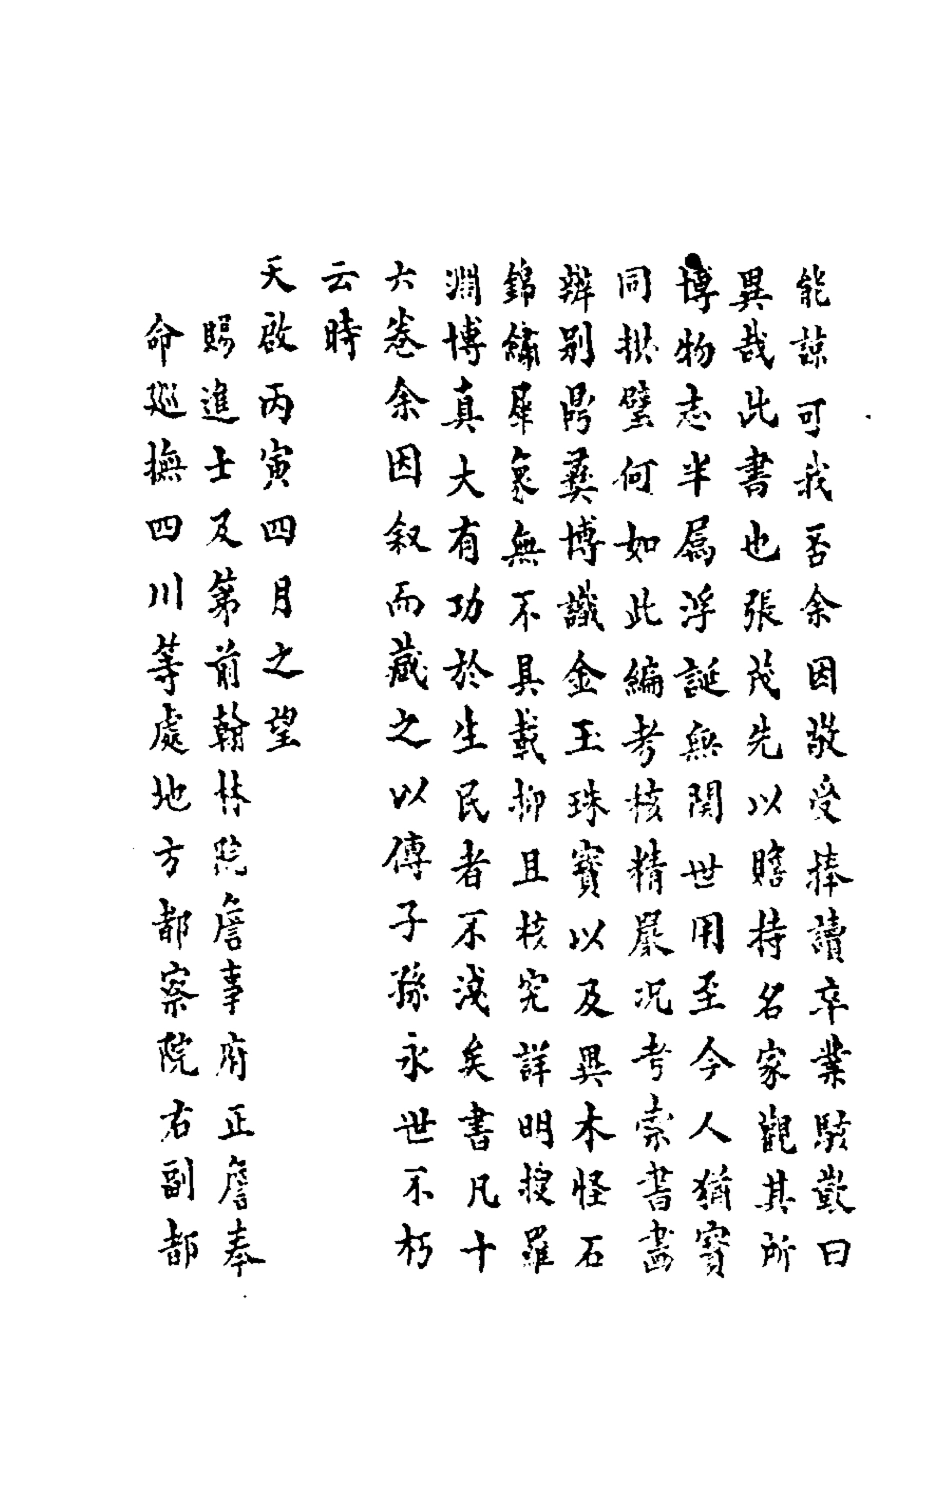 能諒可我否余因敬受捧讀卒業駭歎曰
異哉此書也張茂先以贍持名家觀其所
博物志半屬浮誕無関世用至今人猶寳
同拱璧何如此編考核精嚴况考索書畫
辨别鼎彛博識金玉珠寳以及異木怪石
錦繡犀象無不具載抑且核究詳明搜羅
淵博真大有功於生民者不淺矣書凡十
六卷余因叙而藏之以傳子孫永世不朽
云時
天啟丙寅四月之望
賜進士及第前翰林院詹事府正詹奉
命廵撫四川等處地方都察院右副都